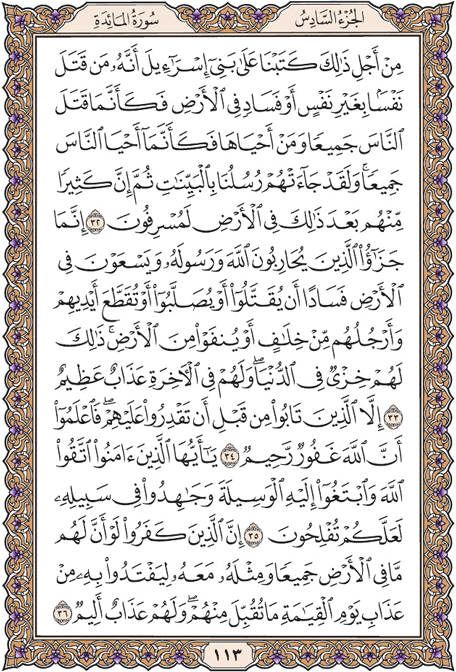 الجزء السادس
سورة المائدة
مِنْ أَجْلِ ذَٰلِكَ كَتَبْنَا عَلَىٰ بَنِىٓ إِسْرَٰٓءِيلَ أَنَّهُۥ مَن قَتَلَ
نَفْسًۢا بِغَيْرِ نَفْسٍ أَوْ فَسَادٍ فِى ٱلْأَرْضِ فَكَأَنَّمَا قَتَلَ
ٱلنَّاسَ جَمِيعًا وَمَنْ أَحْيَاهَا فَكَأَنَّمَآ أَحْيَا ٱلنَّاسَ
جَمِيعًا ۚ وَلَقَدْ جَآءَتْهُمْ رُسُلُنَا بِٱلْبَيِّنَٰتِ ثُمَّ إِنَّ كَثِيرًا
مِّنْهُم بَعْدَ ذَٰلِكَ فِى ٱلْأَرْضِ لَمُسْرِفُونَ ٣٢ إِنَّمَا
جَزَٰٓؤُا۟ ٱلَّذِينَ يُحَارِبُونَ ٱللَّهَ وَرَسُولَهُۥ وَيَسْعَوْنَ فِى
ٱلْأَرْضِ فَسَادًا أَن يُقَتَّلُوٓا۟ أَوْ يُصَلَّبُوٓا۟ أَوْ تُقَطَّعَ أَيْدِيهِمْ
وَأَرْجُلُهُم مِّنْ خِلَٰفٍ أَوْ يُنفَوْا۟ مِنَ ٱلْأَرْضِ ۚ ذَٰلِكَ
لَهُمْ خِزْىٌ فِى ٱلدُّنْيَا ۖ وَلَهُمْ فِى ٱلْـَٔاخِرَةِ عَذَابٌ عَظِيمٌ
٣٣ إِلَّا ٱلَّذِينَ تَابُوا۟ مِن قَبْلِ أَن تَقْدِرُوا۟ عَلَيْهِمْ ۖ فَٱعْلَمُوٓا۟
أَنَّ ٱللَّهَ غَفُورٌ رَّحِيمٌ ٣٤ يَٰٓأَيُّهَا ٱلَّذِينَ ءَامَنُوا۟ ٱتَّقُوا۟
ٱللَّهَ وَٱبْتَغُوٓا۟ إِلَيْهِ ٱلْوَسِيلَةَ وَجَٰهِدُوا۟ فِى سَبِيلِهِۦ
لَعَلَّكُمْ تُفْلِحُونَ ٣٥ إِنَّ ٱلَّذِينَ كَفَرُوا۟ لَوْ أَنَّ لَهُم
مَّا فِى ٱلْأَرْضِ جَمِيعًا وَمِثْلَهُۥ مَعَهُۥ لِيَفْتَدُوا۟ بِهِۦ مِنْ
عَذَابِ يَوْمِ ٱلْقِيَٰمَةِ مَا تُقُبِّلَ مِنْهُمْ ۖ وَلَهُمْ عَذَابٌ أَلِيمٌ ٣٦
١١٣